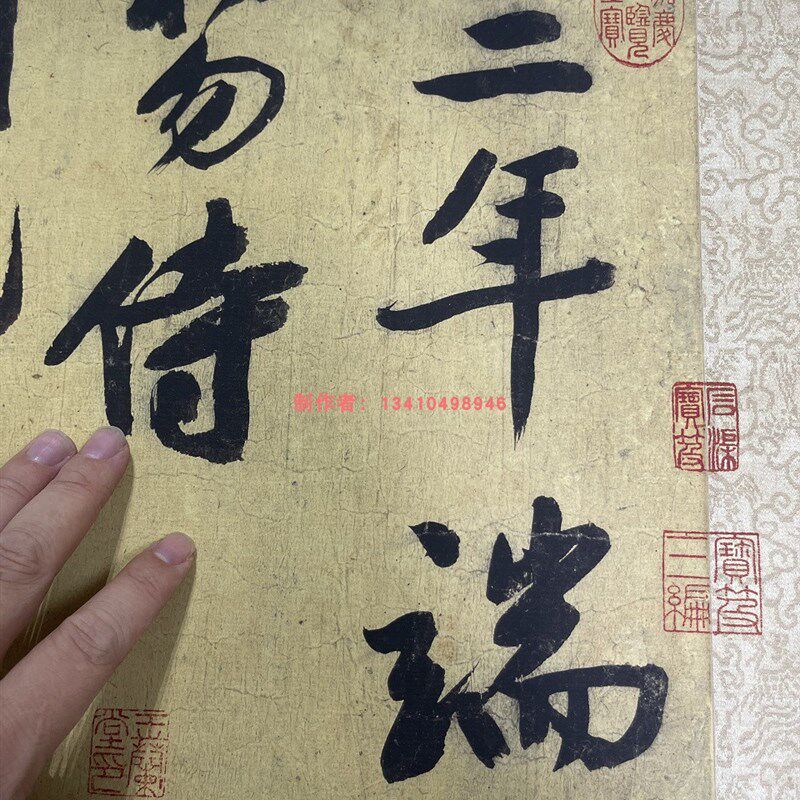 二年端
侍
制作者：13410498946
石渠寶笈
寶笈三編